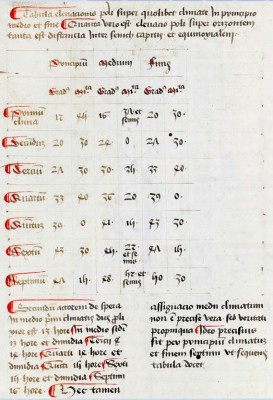 Tabula elevationis poli super quolibet climate in pryncipio
medio et fine Quanta vero est elevacio poli super orizontem
tanta est distancia inter zenith capitis et equinoxialem
Pryncipium Medium Finis
Gradus Mita Gradus Mita Gradus Mita
Primum clima 12 45 16 et semis 20 30
20 30 24 0 27 30
Tercium 27 30 30
Quartum 33 36 20 39 0
Quintum 39 0 41 43 30
Sextum 43 30 45 et semis 47 15
Septimum 47 15 48 et semis 50 30
Secundum actorem de spera
in medio primi climatis dies
est 13 hore In medio
13 hore et dimidia Tercii
14 hore Quarti 14 hore et
dimidia Quinti 15 hore Sexti
15 hore et dimidia Septimi
16 hore Hec tamen
assignacio medii climatum
non est precise vera sed veritati
propinqua Ideo precisius
fit per principium climatis
et finem septimi ut sequens
tabula docet